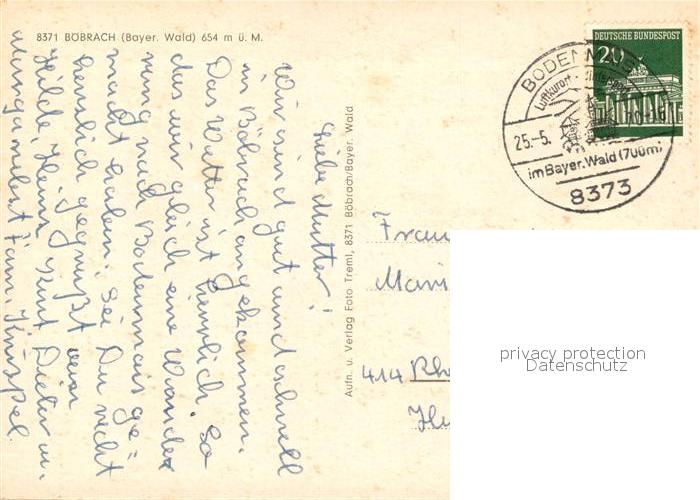 8371 BÖBRACH (Bayer. Wald) 654 m ü. M.
Liebe Mutter!
Wir sind gut und schnell
in Böbrach angekommen.
Das Wetter ist herrlich. So
das wir gleich eine Wander
rung nach Bodenmais ge
macht haben. Sei Du recht
herzlich gegrüßt von
Hilde, Heinz, Kurt Dieter u.
Aufn. u. Verlag Foto Treml, 8371 Böbrach/Bayer. Wald
DEUTSCHE BUNDESPOST
20
BODENMAIS
Luftkurort
25.-5. 70-16
im Bayer. Wald (700m)
8373
Frau
414 Rh
privacy protection
Datenschutz